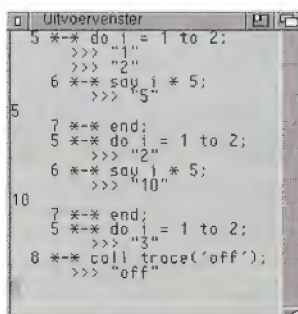 Uitvoervenster
5 *-* do i = 1 to 2;
>>> "1"
>>> "2"
6 *-* say i * 5;
>>> "5"
5
7 *-* end;
5 *-* do i = 1 to 2;
>>> "2"
6 *-* say i * 5;
>>> "10"
10
7 *-* end;
5 *-* do i = 1 to 2;
>>> "3"
8 *-* call trace('off');
>>> "off"